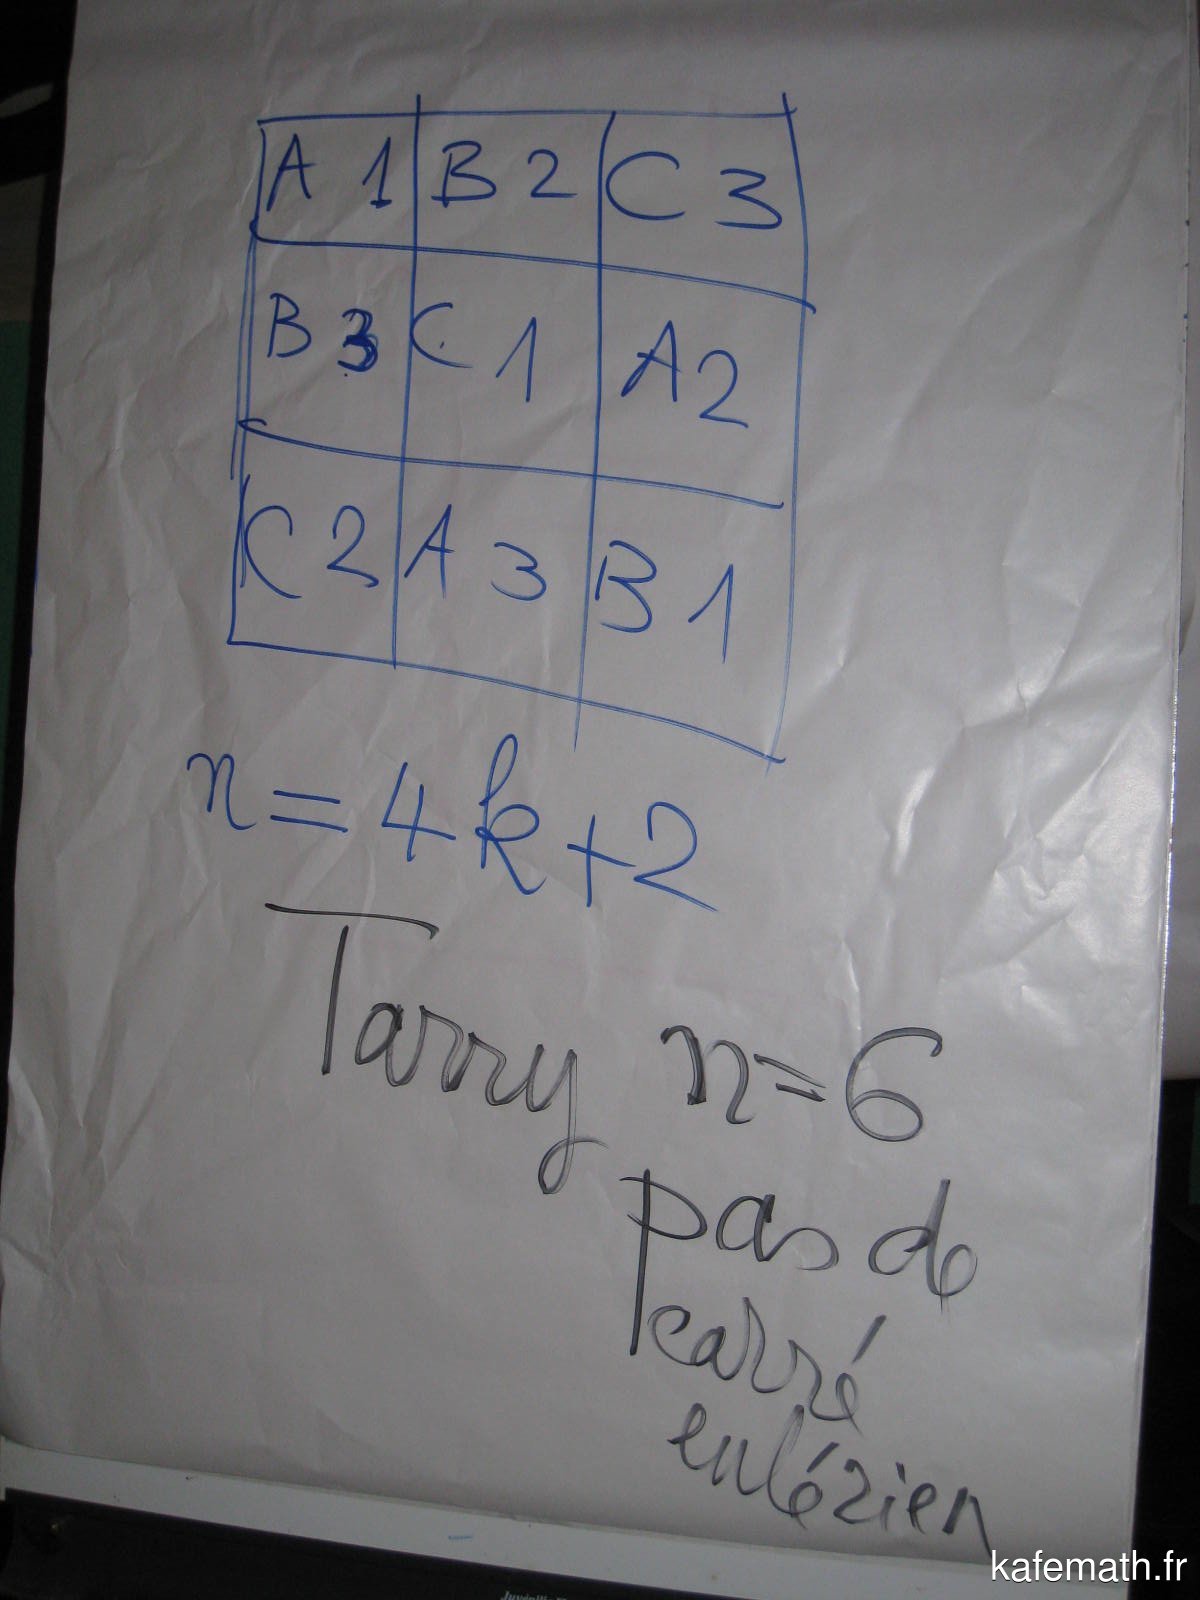 A 1 B 2 C 3
B 3 C 1 A 2
C 2 A 3 B 1
n = 4k + 2
Tarry n = 6
pas de
carré
eulérien
kafemath.fr